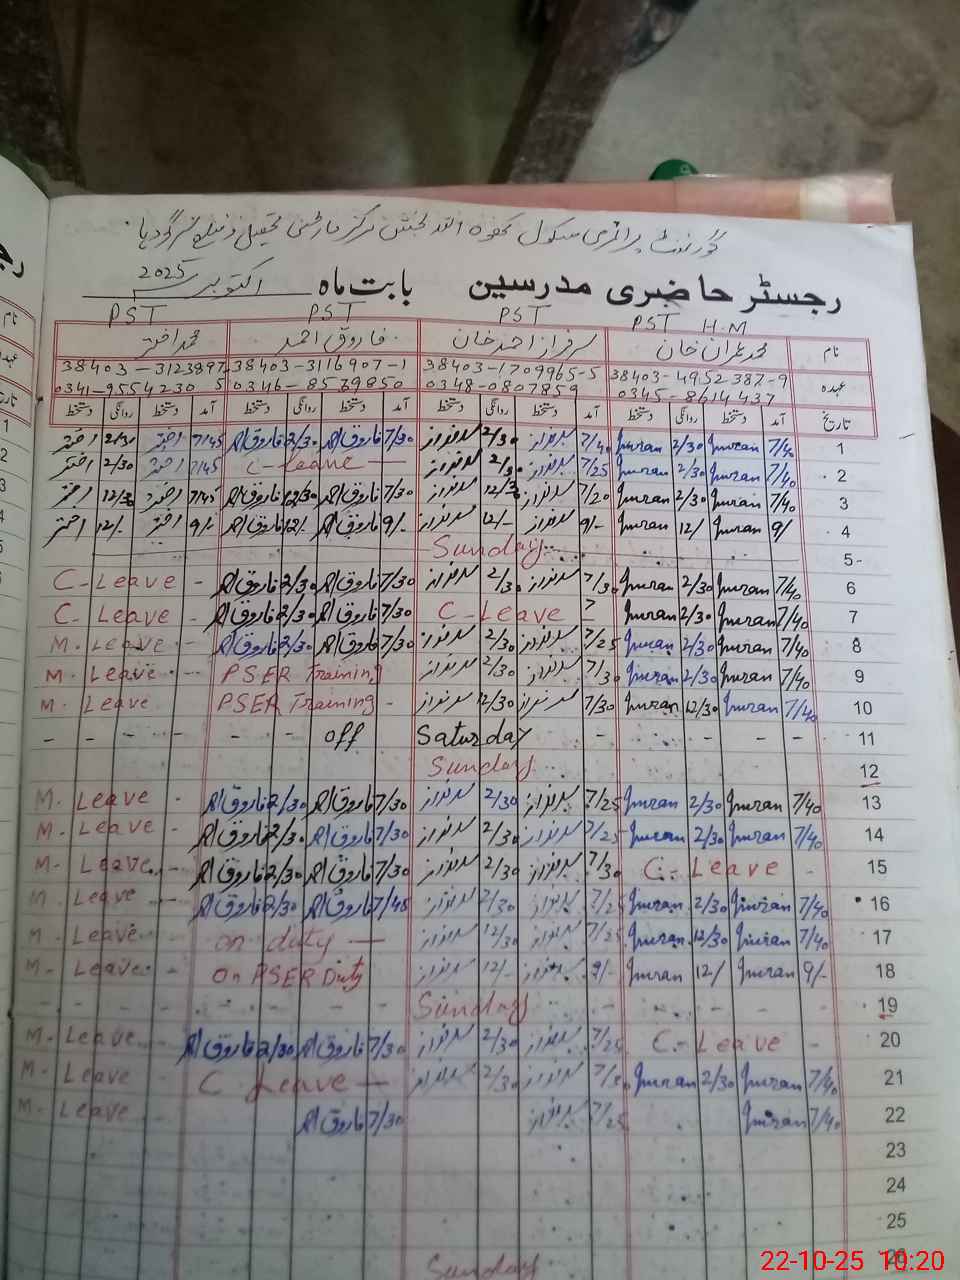 گورنمنٹ پرائمری سکول
رجسٹر حاضری مدرسین بابت ماہ اکتوبر 2025
PST H.M PST PST PST
نام محمد عمران خان سرفراز احمد خان فاروق احمد محمد اختر
عہدہ 38403-4952387-9 38403-1709965-5 38403-3116907-1 38403-3123897
0345-8614437 0348-0807859 0346-8579850 0341-9554230 5
تاریخ آمد دستخط روانگی دستخط آمد دستخط روانگی دستخط آمد دستخط روانگی دستخط آمد دستخط روانگی دستخط
1 7/40 Imran 2/30 Imran 7/40 سرفراز 2/30 سرفراز 7/30 فاروق احمد 2/30 فاروق احمد 7/45 اختر 2/30 اختر
2 7/40 Imran 2/30 Imran 7/25 سرفراز 2/30 سرفراز C-Leave 7/45 اختر 2/30 اختر
3 7/40 Imran 2/30 Imran 7/20 سرفراز 12/30 سرفراز 7/30 فاروق احمد 12/30 فاروق احمد 7/45 اختر 12/30 اختر
4 9/ Imran 12/ Imran 9/- سرفراز 12/- سرفراز 9/- فاروق احمد 12/- فاروق احمد 9/- اختر 12/- اختر
5- Sunday
6 7/40 Imran 2/30 Imran 7/30 سرفراز 2/30 سرفراز 7/30 فاروق احمد 2/30 فاروق احمد C-Leave -
7 7/40 Imran 2/30 Imran C-Leave 7/30 فاروق احمد 2/30 فاروق احمد C-Leave -
8 7/40 Imran 2/30 Imran 7/25 سرفراز 2/30 سرفراز 7/30 فاروق احمد 2/30 فاروق احمد M. Leave -
9 7/40 Imran 2/30 Imran 7/30 سرفراز 2/30 سرفراز PSER Training M. Leave
10 7/40 Imran 12/30 Imran 7/30 سرفراز 12/30 سرفراز PSER Training - M. Leave
11 off Saturday
12 Sunday
13 7/40 Imran 2/30 Imran 7/25 سرفراز 2/30 سرفراز 7/30 فاروق احمد 2/30 فاروق احمد M. Leave -
14 7/40 Imran 2/30 Imran 7/25 سرفراز 2/30 سرفراز 7/30 فاروق احمد 2/30 فاروق احمد M. Leave -
15 C-Leave - 7/30 سرفراز 2/30 سرفراز 7/30 فاروق احمد 2/30 فاروق احمد M. Leave -
16 7/40 Imran 2/30 Imran 7/25 سرفراز 2/30 سرفراز 7/45 فاروق احمد 2/30 فاروق احمد M. Leave -
17 7/40 Imran 12/30 Imran 7/25 سرفراز 12/30 سرفراز on duty — M. Leave -
18 9/- Imran 12/ Imran 9/- سرفراز 12/- سرفراز On PSER Duty M. Leave -
19 Sunday
20 C-Leave - 7/25 سرفراز 2/30 سرفراز 7/30 فاروق احمد 2/30 فاروق احمد M. Leave -
21 7/40 Imran 2/30 Imran 7/30 سرفراز 2/30 سرفراز C Leave — M. Leave -
22 7/40 Imran 7/25 سرفراز 7/30 فاروق احمد M. Leave -
23
24
25
26 Sunday
22-10-25 10:20